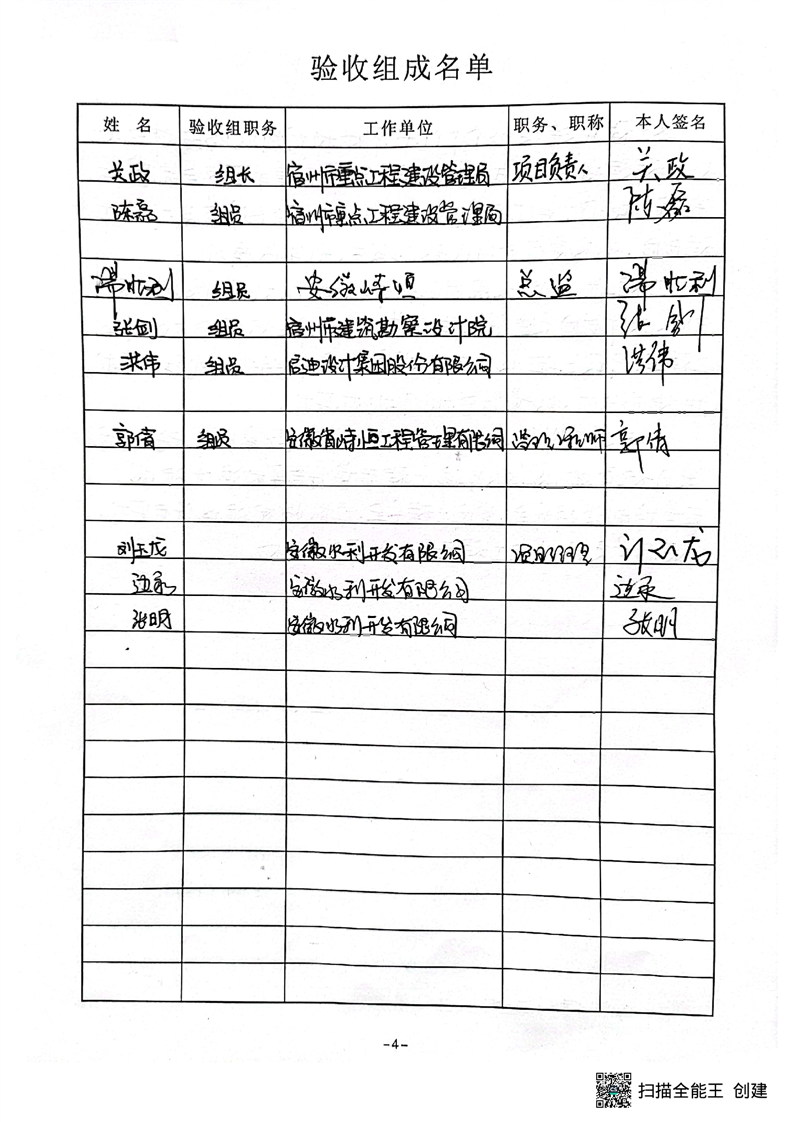 验收组成名单
姓 名 验收组职务 工作单位 职务、职称 本人签名
关政 组长 宿州市重点工程建设管理局 项目负责人 关政
陈磊 组员 宿州市重点工程建设管理局 陈磊
组员 安徽 总监
张剑 组员 宿州市建筑勘察设计院 张剑
洪伟 组员 启迪设计集团股份有限公司 洪伟
郭倩 组员 安徽省 恒工程管理有限公司 郭倩
刘玉龙 安徽水利开发有限公司 项目经理 刘玉龙
安徽水利开发有限公司
张明 安徽水利开发有限公司 张明
-4-
扫描全能王 创建